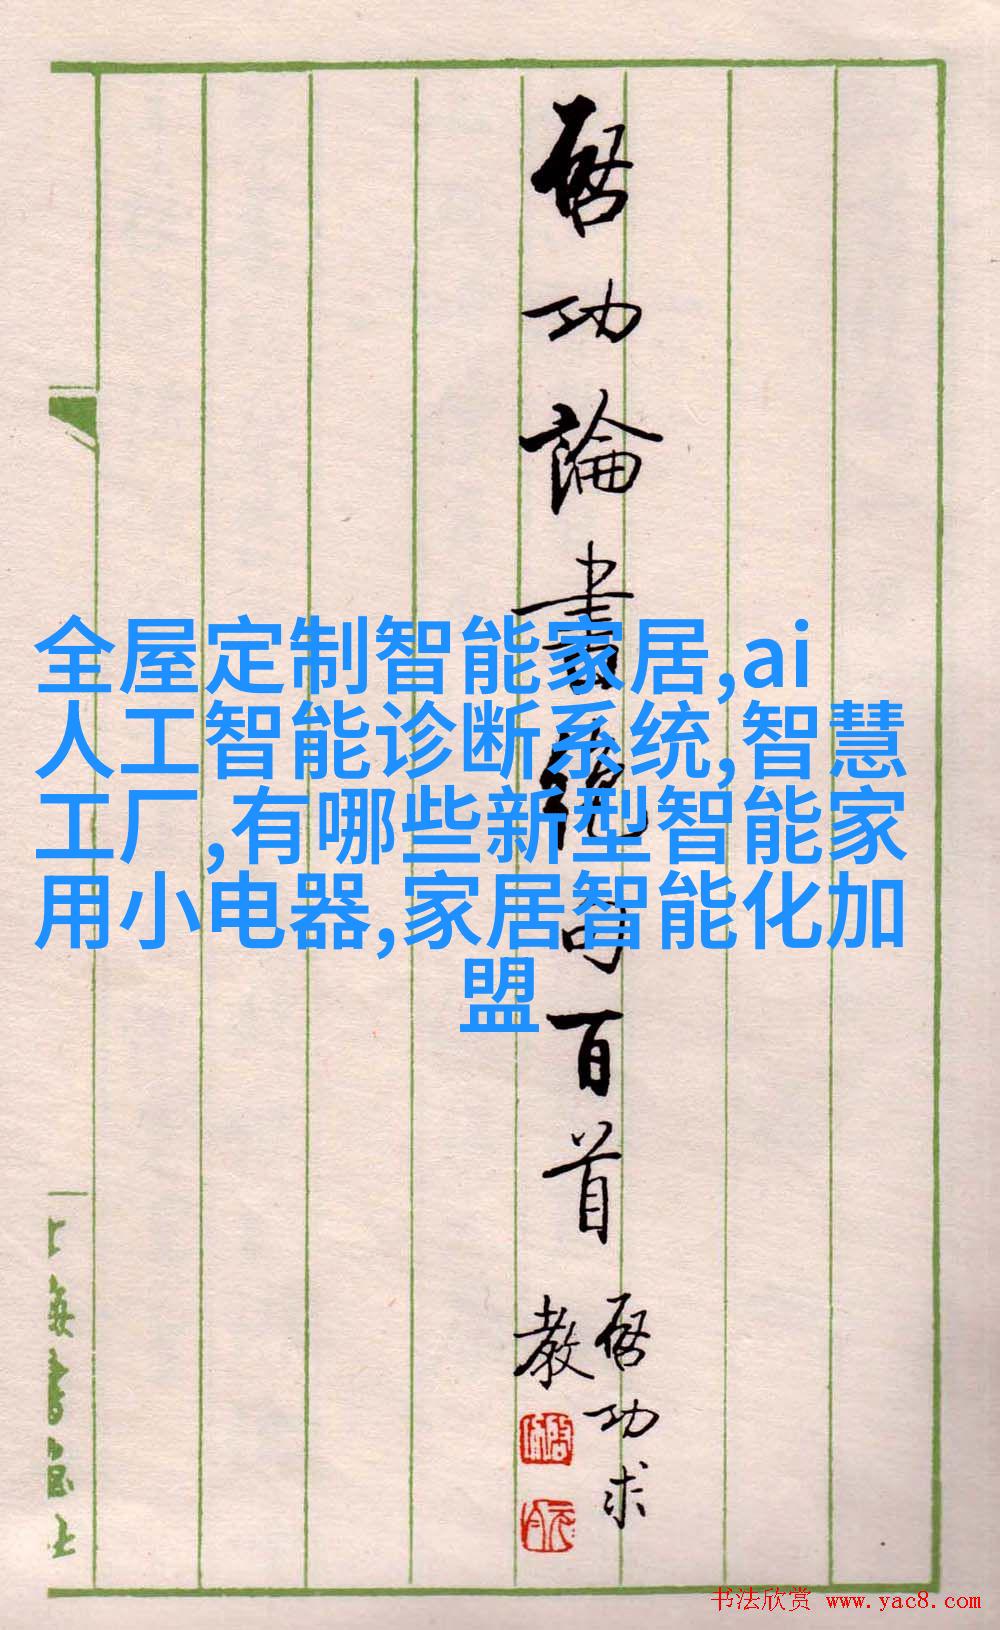 启功論書絶句百首
启功求
教
全屋定制智能家居,ai
人工智能诊断系统,智慧
工厂,有哪些新型智能家
用小电器,家居智能化加
盟
上海書画社
书法欣赏 www.yac8.com